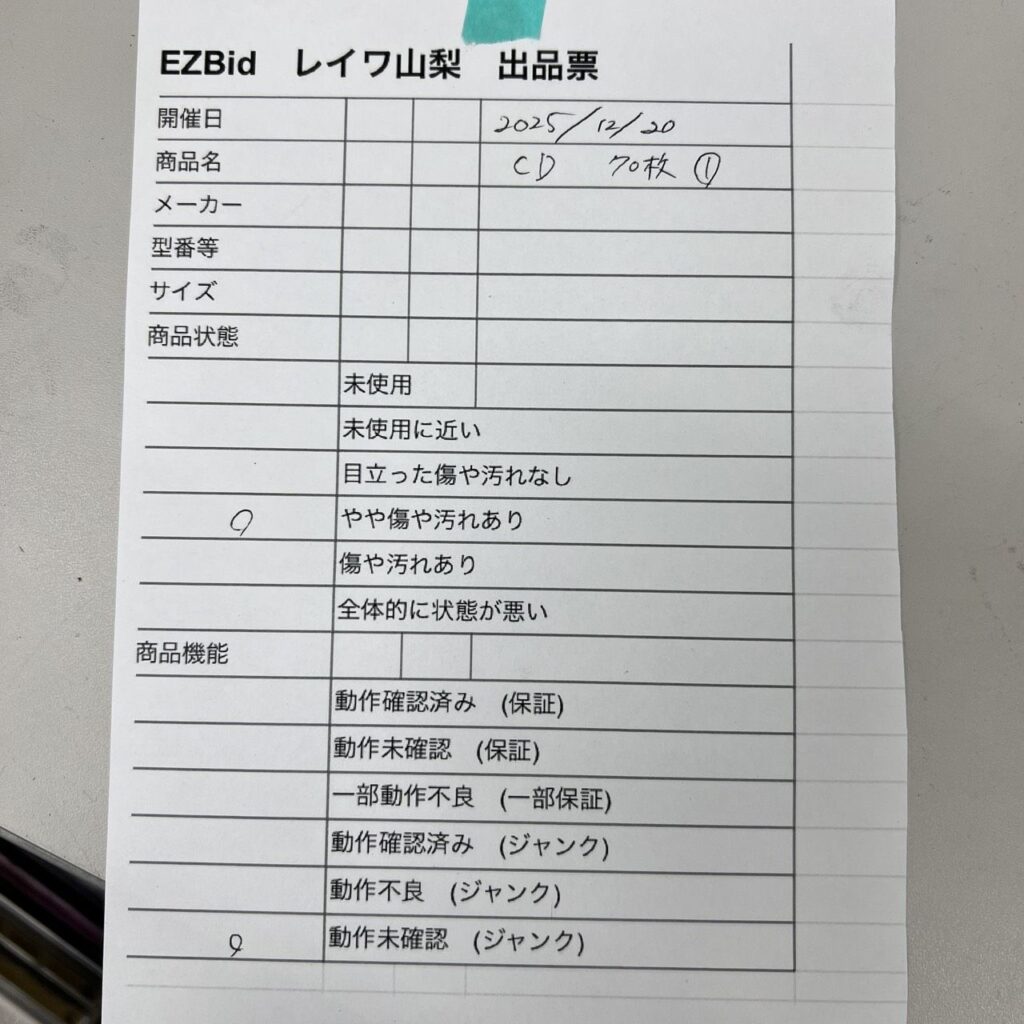 EZBid レイワ山梨 出品票
開催日 2025/12/20
商品名 CD 70枚 ①
メーカー
型番等
サイズ
商品状態
未使用
未使用に近い
目立った傷や汚れなし
○ やや傷や汚れあり
傷や汚れあり
全体的に状態が悪い
商品機能
動作確認済み (保証)
動作未確認 (保証)
一部動作不良 (一部保証)
動作確認済み (ジャンク)
動作不良 (ジャンク)
○ 動作未確認 (ジャンク)